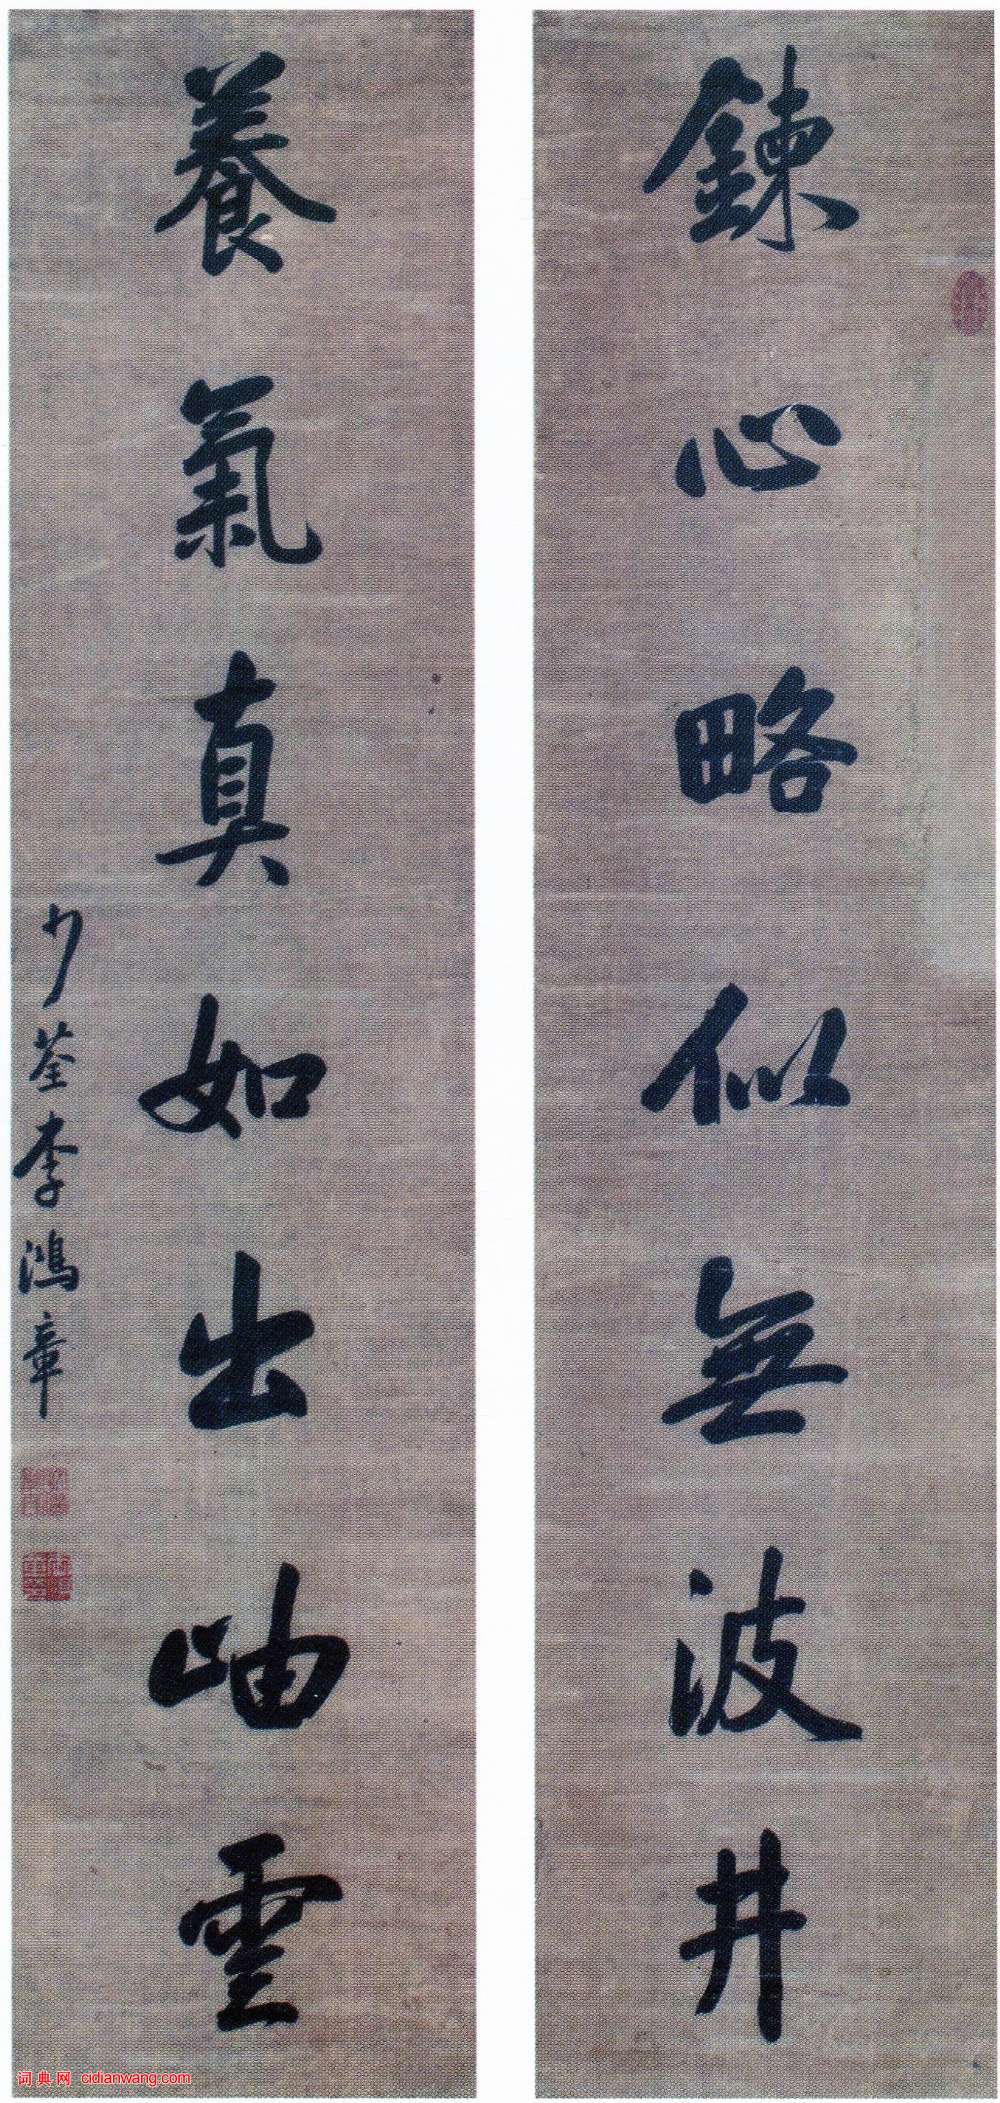 鍊心略似無波井
養氣真如出岫雲
少荃李鴻章
词典网 cidianwang.com